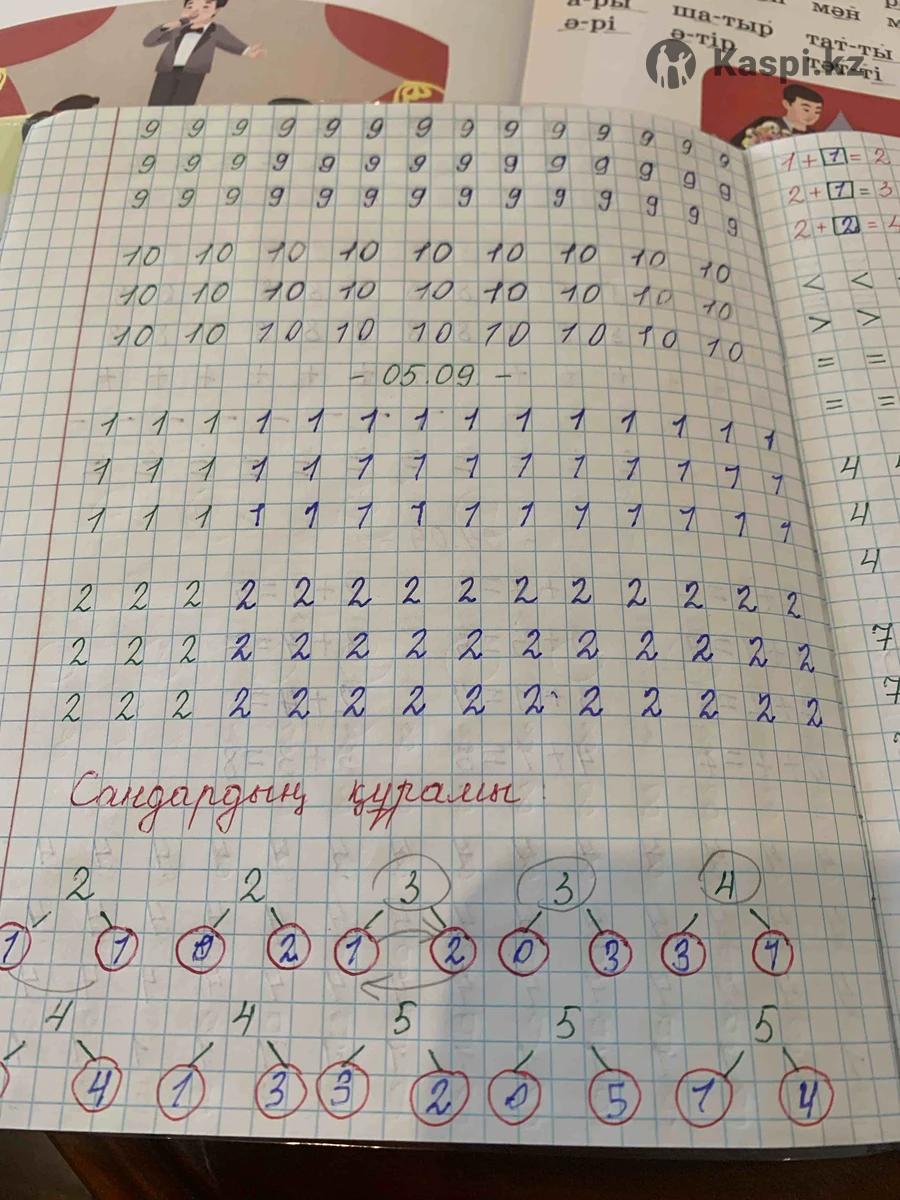 а-ры
ә-рі
ша-тыр
ә-тір
мән
тат-ты
тәт-ті
Kaspi.kz
9 9 9 9 9 9 9 9 9 9 9 9 9 9
9 9 9 9 9 9 9 9 9 9 9 9 9 9
9 9 9 9 9 9 9 9 9 9 9 9 9 9
10 10 10 10 10 10 10 10 10
10 10 10 10 10 10 10 10 10
10 10 10 10 10 10 10 10 10
- 05.09 -
1 1 1 1 1 1 1 1 1 1 1 1 1 1
1 1 1 1 1 1 1 1 1 1 1 1 1 1
1 1 1 1 1 1 1 1 1 1 1 1 1 1
2 2 2 2 2 2 2 2 2 2 2 2 2 2
2 2 2 2 2 2 2 2 2 2 2 2 2 2
2 2 2 2 2 2 2 2 2 2 2 2 2 2
Сандардың құрамы:
2 2 3 3 4
1 1 0 2 1 2 0 3 3 1
4 4 5 5 5
4 1 3 3 2 0 5 1 4
1 + 1 = 2
2 + 1 = 3
2 + 2 = 4
< <
> >
= =
= =
4
4
4
7
7